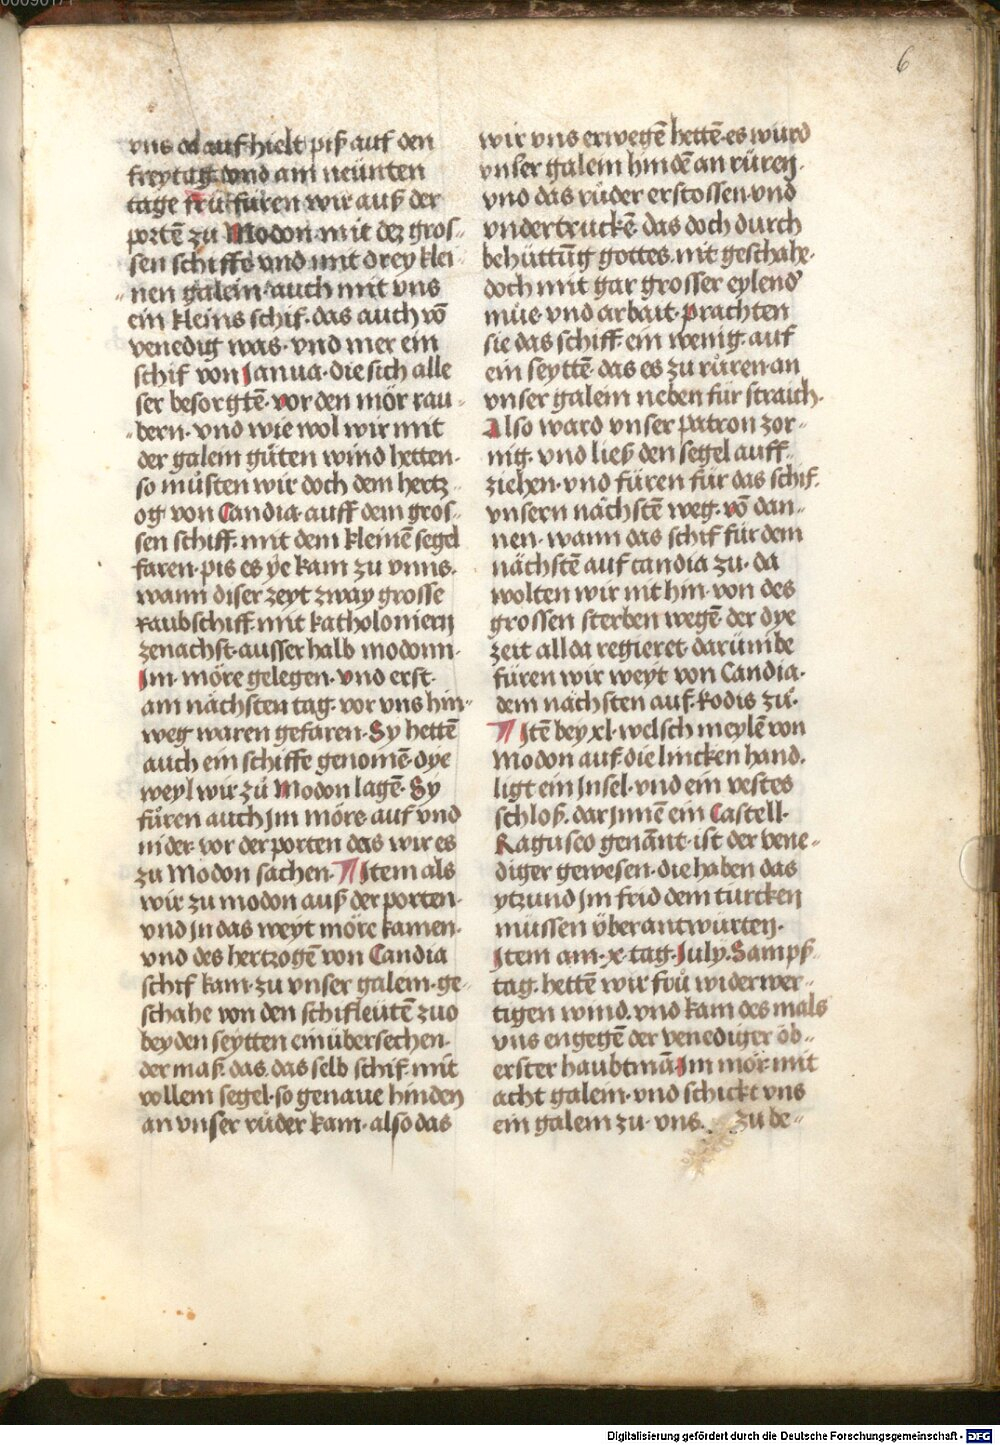 6
vns od auf hielt piß auf den
freytag. vnd am neünten
tage frü füren wir auß der
portē zu Modon mit dez gros„
sen schiffe vnd mit drey klei„
„nen galein auch mit vns
ein kleins schif. das auch vō
venedig was. vnd mer ein
schif von Janua. die sich alle
ser besorgtē. vor den mör rau„
„bern. vnd wie wol wir mit
der galein güten wind hetten.
so müsten wir doch dem hertz„
og von Candia. auff dem gros„
sen schiff. mit dem kleinē segel
faren. pis es ye kam zu vnns.
wann diser zeyt zway grosse
raubschiff mit katholoniern
zenachst. ausserhalb modonn.
Jm. möre gelegen. vnd erst.
am nächsten tag. vor vns hin„
weg waren gefaren. Sy hettē
auch ein schiffe genomē. dye
weyl wir zü Modon lagē. Sy
füren auch jm möre auf vnd
nider vor der porten das wir es
zu Modon sachen. ¶ Jtem als
wir zu modon auß der porten.
vnd jn das weyt möre kamen.
vnd des hertzogē von Candia
schif kam. zu vnser galein. ge„
schahe von den schifleütē zuo
beyden seytten ein übersechen.
der maß. das. das selb schif. mit
vollem segel. so genaue hinden
an vnser rüder kam. also das
wir vns erwegē hettē. es würd
vnser galein hindē an rüren.
vnd das rüder erstossen. vnd
vndertruckē. das doch durch
behüttūg gottes. nit geschahe.
doch mit gar grosser eylend
müe. vnd arbait. prachten
sie das schiff. ein wenig. auf
ein seyttē. das es zu rüren. an
vnser galein neben für straich.
Also ward vnser patron zor„
nig. vnd ließ den segel auff„
ziehen. vnd füren für das schif.
vnsern nächstē weg. vō dan„
nen. wann das schif für dem
nächstē auf candia zu. da
wolten wir nit hin. von des
grossen sterben wegē. der dye
zeit allda regieret. darümbe
füren wir weyt von Candia.
dem nächsten auf. Rodis zü.
¶ Jtē bey xl. welsch meylē von
Modon auf die lincken hand.
ligt ein Jnsel. vnd ein vestes
schloß. dar jnnē ein Castell.
Raguseo genānt. ist der vene„
diger gewesen. die haben das
ytzund jm frid dem türcken
müssen überantwürten.
Jtem am. x. tag. July. Sampß„
tag. hettē wir frü widerwer„
tigen wind. vnd kam des mals
vns engegē der venediger öb„
erster haubtmā. Jm mör. mit
acht galein. vnd schickt vns
ein galein zu. vns. zu be„
Digitalisierung gefördert durch die Deutsche Forschungsgemeinschaft - DFG